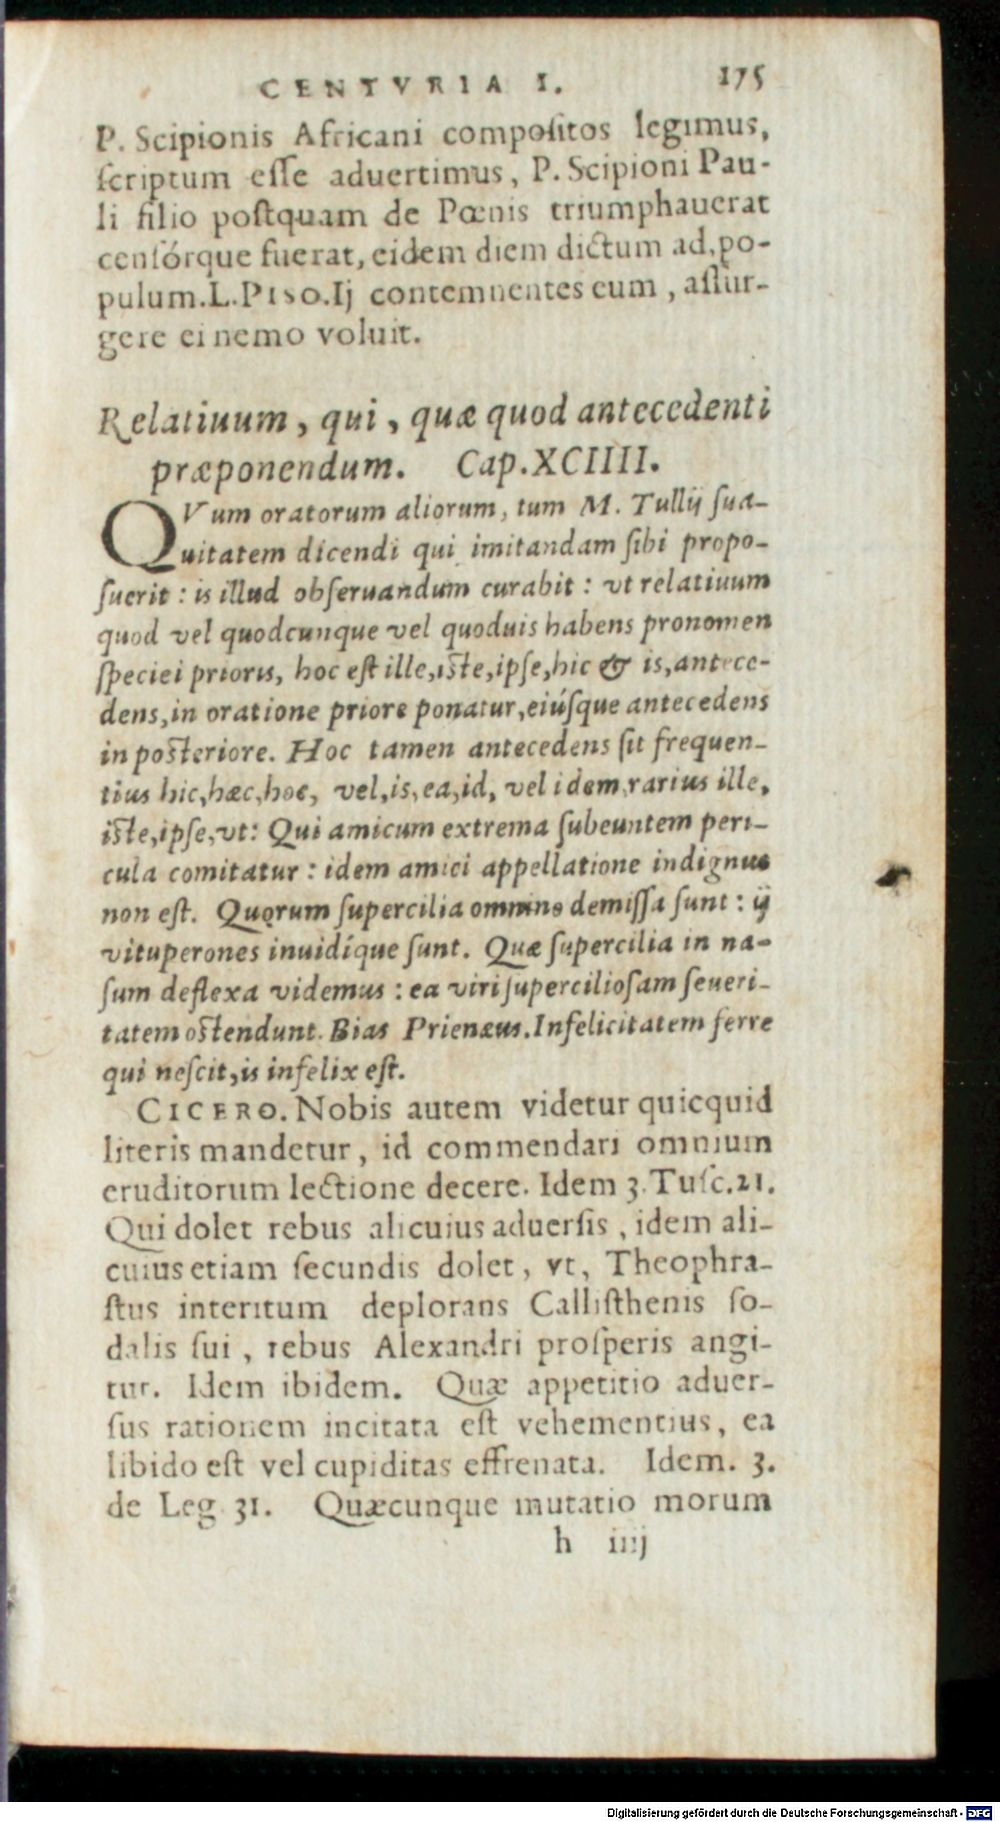 CENTVRIA I. 175
P. Scipionis Africani compositos legimus,
scriptum esse aduertimus, P. Scipioni Pau-
li filio postquam de Pœnis triumphauerat
censórque fuerat, eidem diem dictum ad po-
pulum. L. PISO. Ij contemnentes eum, assur-
gere ei nemo voluit.
Relatiuum, qui, quæ quod antecedenti
præponendum. Cap. XCIIII.
QVum oratorum aliorum, tum M. Tullij sua-
uitatem dicendi qui imitandam sibi propo-
suerit: is illud obseruandum curabit: vt relatiuum
quod vel quodcunque vel quoduis habens pronomen
speciei prioris, hoc est ille, iste, ipse, hic & is, antece-
dens, in oratione priore ponatur, eiúsque antecedens
in posteriore. Hoc tamen antecedens sit frequen-
tius hic, hæc, hoc, vel, is, ea, id, vel idem, rarius ille,
iste, ipse, vt: Qui amicum extrema subeuntem peri-
cula comitatur: idem amici appellatione indignus
non est. Quorum supercilia omnino demissa sunt: ij
vituperones inuidíque sunt. Quæ supercilia in na-
sum deflexa videmus: ea viri superciliosam seueri-
tatem ostendunt. Bias Prienæus. Infelicitatem ferre
qui nescit, is infelix est.
CICERO. Nobis autem videtur quicquid
literis mandetur, id commendari omnium
eruditorum lectione decere. Idem 3. Tusc. 21.
Qui dolet rebus alicuius aduersis, idem ali-
cuius etiam secundis dolet, vt, Theophra-
stus interitum deplorans Callisthenis so-
dalis sui, rebus Alexandri prosperis angi-
tur. Idem ibidem. Quæ appetitio aduer-
sus rationem incitata est vehementius, ea
libido est vel cupiditas effrenata. Idem. 3.
de Leg. 31. Quæcunque mutatio morum
h iiij
Digitalisierung gefördert durch die Deutsche Forschungsgemeinschaft - DFG